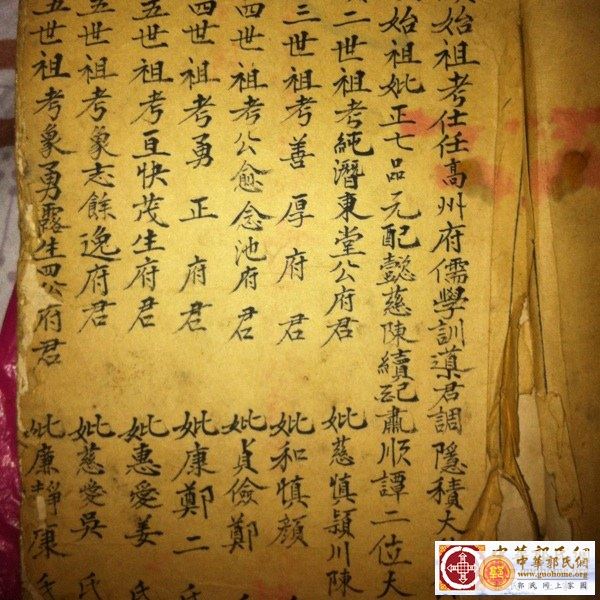 始祖考仕任高州府儒學訓導君調隱積大
始祖妣正七品元配懿慈陳續配肅順譚二位大
二世祖考純潛東堂公府君 妣慈慎潁川陳
三世祖考善厚府君 妣和慎顏
四世祖考公愈念池府君 妣貞儉鄭
四世祖考勇正府君 妣康鄭二
五世祖考亘快茂生府君 妣惠愛姜氏
五世祖考象志餘逸府君 妣慈愛吳氏
五世祖考象勇露生四公府君 妣廉靜康氏
中華郭氏網
www.guohome.org
郭氏网上家園